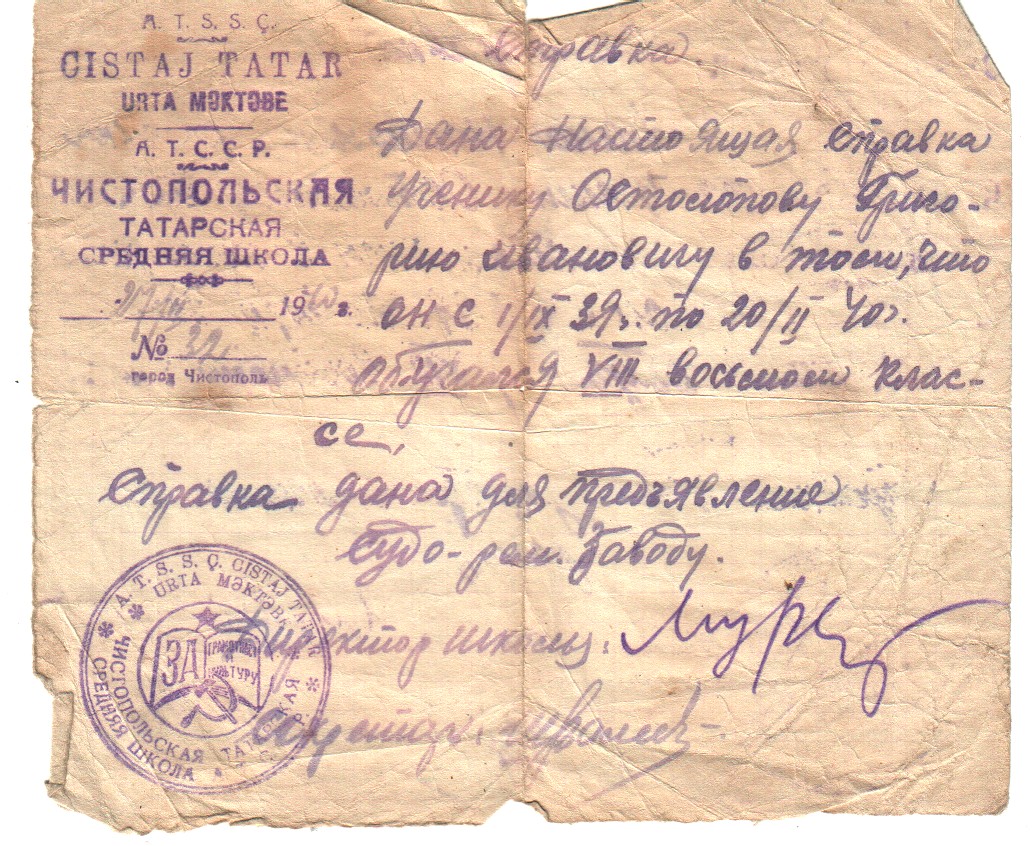 A. T. S. S. Ç.
CISTAJ TATAR
URTA MƏKTƏBE
A. T. C. C. P.
ЧИСТОПОЛЬСКАЯ
ТАТАРСКАЯ
СРЕДНЯЯ ШКОЛА
1940 г.
№ 32
город Чистополь
Справка.
Дана настоящая справка
ученику Остолопову Григо-
рию Ивановичу в том, что
он с 1/IX 39г. по 20/II 40г.
обучался VIII восьмом клас-
се,
Справка дана для предъявления
Судо-рем. Заводу.
Директор школы:
Секретарь:
A. T. S. S. Ç. CISTAJ TATAR
URTA MƏKTƏBE
ЧИСТОПОЛЬСКАЯ ТАТАРСКАЯ
СРЕДНЯЯ ШКОЛА
ЗА
КУЛЬТУРУ